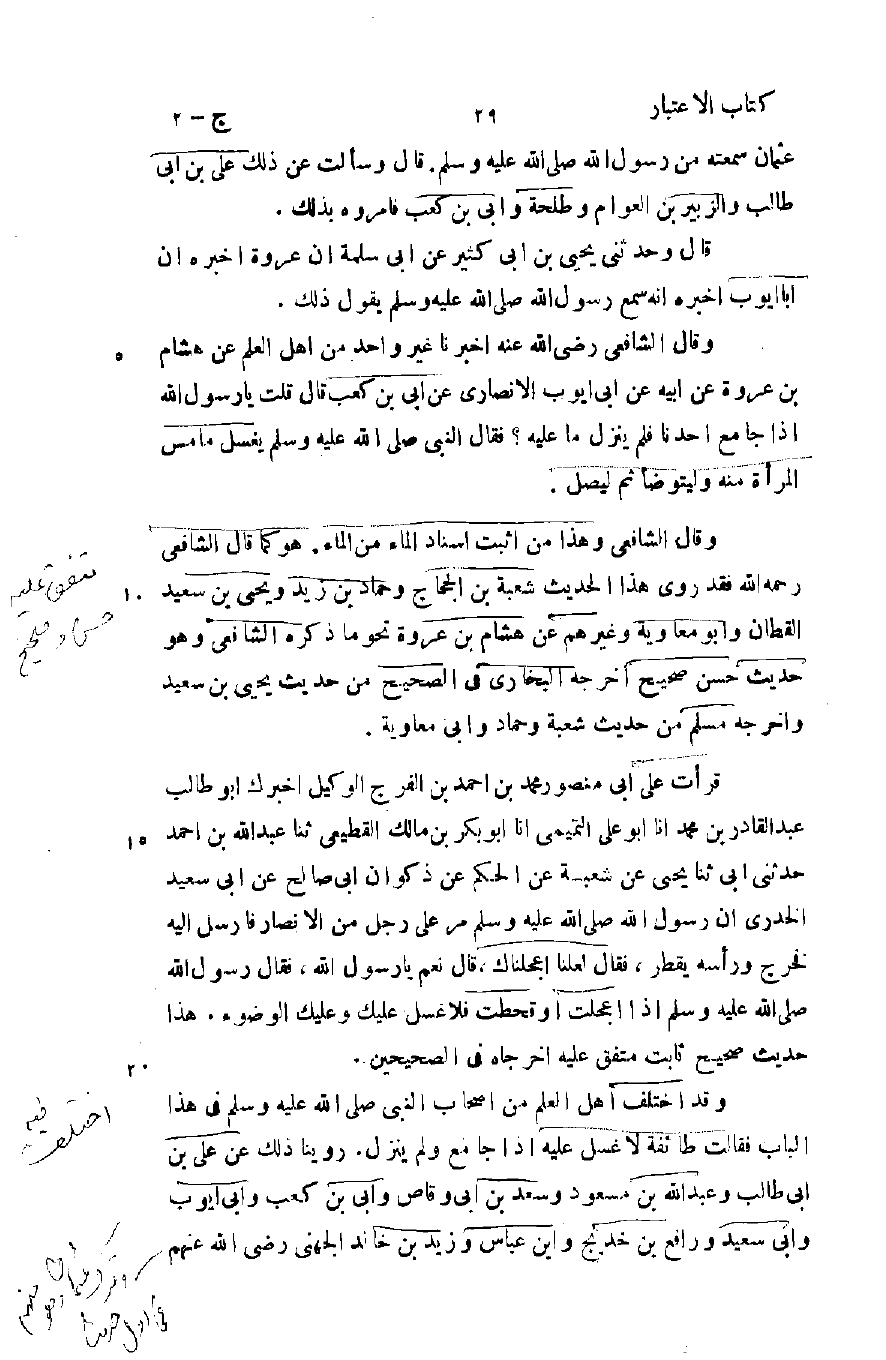 كتاب الاعتبار ٢٩ ج - ٢
عثمان سمعته من رسول الله صلى الله عليه وسلم. قال وسألت عن ذلك على بن ابى
طالب والزبير بن العوام وطلحة وابى بن كعب فامروه بذلك .
قال وحدثنى يحيى بن ابى كثير عن ابى سلمة ان عروة اخبره ان
اباايوب اخبره انه سمع رسول الله صلى الله عليه وسلم يقول ذلك .
وقال الشافعى رضى الله عنه اخبرنا غير واحد من اهل العلم عن هشام ٥
بن عروة عن ابيه عن ابى ايوب الانصارى عن ابى بن كعب قال قلت يارسول الله
اذا جامع احدنا فلم ينزل ما عليه ؟ فقال النبى صلى الله عليه وسلم يغسل مامس
المرأة منه وليتوضأ ثم ليصل .
وقال الشافعى وهذا من اثبت اسناد الماء من الماء . هو كما قال الشافعى
رحمه الله فقد روى هذا الحديث شعبة بن الحجاج وحماد بن زيد ويحيى بن سعيد ١٠
متفق عليه
القطان وابو معاوية وغيرهم عن هشام بن عروة نحو ما ذكره الشافعى وهو
صحيح
حديث حسن صحيح اخرجه البخارى فى الصحيح من حديث يحيى بن سعيد
واخرجه مسلم من حديث شعبة وحماد وابى معاوية .
قرأت على ابى منصور محمد بن احمد بن الفرج الوكيل اخبرك ابو طالب
عبدالقادر بن محمد انا ابو على التميمى انا ابوبكر بن مالك القطيعى ثنا عبدالله بن احمد ١٥
حدثنى ابى ثنا يحيى عن شعبة عن الحكم عن ذكوان ابى صالح عن ابى سعيد
الخدرى ان رسول الله صلى الله عليه وسلم مر على رجل من الانصار فارسل اليه
فخرج ورأسه يقطر ، فقال لعلنا اعجلناك ، قال نعم يارسول الله ، فقال رسول الله
صلى الله عليه وسلم اذا اعجلت او قحطت فلا غسل عليك وعليك الوضوء . هذا
حديث صحيح ثابت متفق عليه اخرجاه فى الصحيحين . ٢٠
وقد اختلف أهل العلم من اصحاب النبى صلى الله عليه وسلم فى هذا
اختلف فيه
الباب فقالت طائفة لا غسل عليه اذا جامع ولم ينزل . روينا ذلك عن على بن
ابى طالب وعبدالله بن مسعود وسعد بن ابى وقاص وابى بن كعب وابى ايوب
وابى سعيد ورافع بن خديج وابن عباس وزيد بن خاند الجهنى رضى الله عنهم